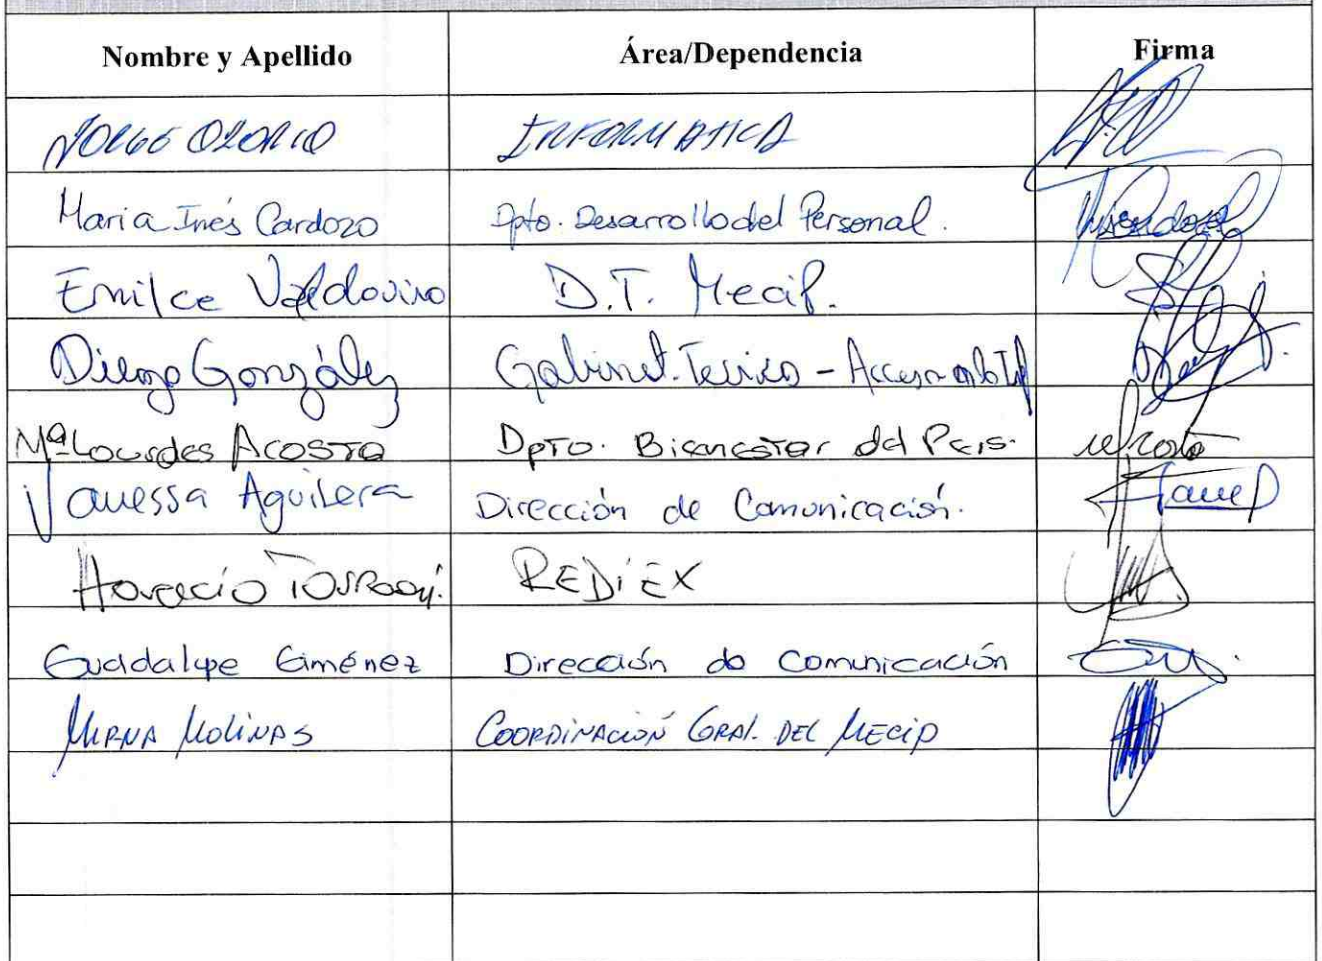 Nombre y Apellido Área/Dependencia Firma
JORGE OZORIO INFORMATICA
Maria Inés Cardozo Dpto. Desarrollo del Personal.
Emilce Valdovino D.T. Mecip.
Diego González Gabinet. Tecnico - Acceso
Mª Lourdes Acosta Dpto. Bienestar del Pers.
Vanessa Aguilera Dirección de Comunicación.
Horacio REDIEX
Guadalupe Giménez Dirección de Comunicación
Mirna Molinas Coordinación Gral. del Mecip